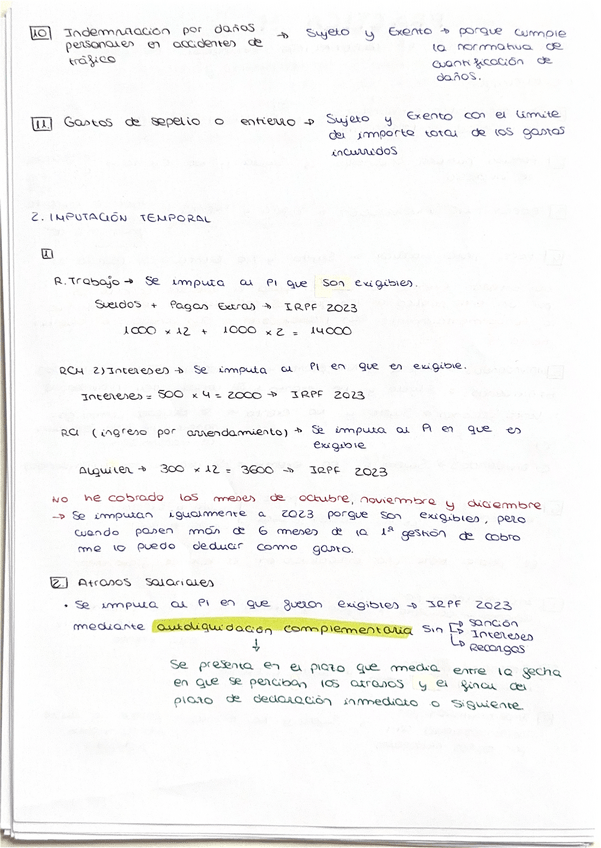 10 Indemnización por daños → Sujeto y Exento → porque cumple
personales en accidentes de la normativa de
tráfico cuantificación de
daños.
11 Gastos de sepelio o entierro → Sujeto y Exento con el límite
del importe total de los gastos
incurridos
2. IMPUTACIÓN TEMPORAL
1
R. Trabajo → Se imputa al PI que son exigibles.
Sueldos + Pagas Extras → IRPF 2023
1000 × 12 + 1000 × 2 = 14000
RCM 2) Intereses → Se imputa al PI en que es exigible.
Intereses = 500 × 4 = 2000 → IRPF 2023
RCI (ingreso por arrendamiento) → Se imputa al PI en que es
exigible
Alquiler → 300 × 12 = 3600 → IRPF 2023
NO he cobrado los meses de octubre, noviembre y diciembre
→ Se imputan igualmente a 2023 porque son exigibles, pero
cuando pasen más de 6 meses de la 1ª gestión de cobro
me lo puedo deducir como gasto.
2. Atrasos salariales
• Se imputa al PI en que fueron exigibles → IRPF 2023
mediante autoliquidación complementaria sin → Sanción
→ Intereses
→ Recargos
↓
Se presenta en el plazo que media entre la fecha
en que se perciban los atrasos y el final del
plazo de declaración inmediato o siguiente